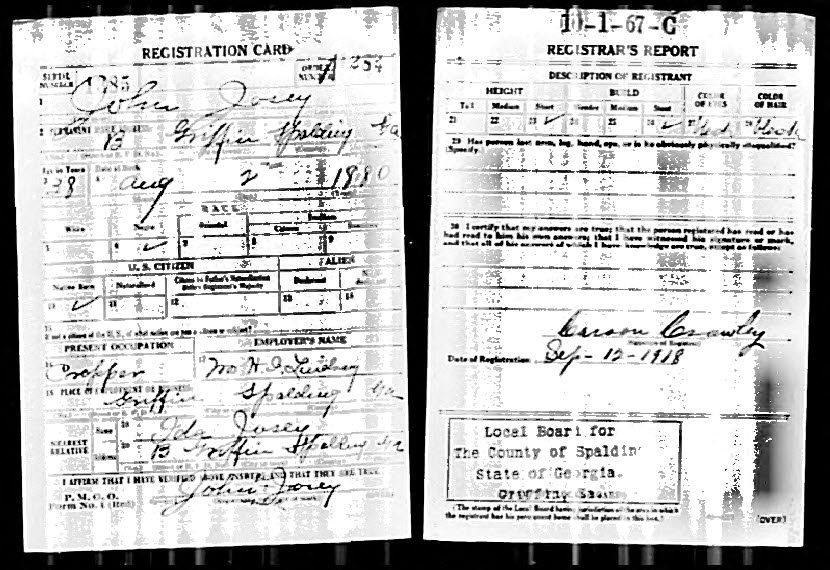 REGISTRATION CARD
SERIAL NUMBER 1285
ORDER NUMBER A 254
1 John Josey
2 PERMANENT HOME ADDRESS
B Griffin Spalding Ga
Age in Years
Date of Birth
38 Aug 2 1880
RACE
White
Negro
Oriental
Indian
Citizen
5
6 ✓
7
8
9
U. S. CITIZEN
ALIEN
Native Born
Naturalized
Citizen by Father's Naturalization Before Registrant's Majority
Declarant
10 ✓
11
12
13
14
15
If not a citizen of the U. S., of what nation are you a citizen or subject?
PRESENT OCCUPATION
EMPLOYER'S NAME
16 Cropper
17 Lindsey
18 PLACE OF EMPLOYMENT OR BUSINESS
Griffin Spalding Ga
NEAREST RELATIVE
Name
19 Ida Josey
Address
20 B Griffin Spalding Ga
I AFFIRM THAT I HAVE VERIFIED ABOVE ANSWERS AND THAT THEY ARE TRUE
P. M. G. O.
Form No. 1 (Red)
John Josey
10-1-67-C
REGISTRAR'S REPORT
DESCRIPTION OF REGISTRANT
HEIGHT
BUILD
COLOR OF EYES
COLOR OF HAIR
Tall
Medium
Short
Slender
Medium
Stout
21
22
23 ✓
24
25
26 ✓
27 black
28 black
29 Has person lost arm, leg, hand, eye, or is he obviously physically disqualified?
(Specify.)
30 I certify that my answers are true; that the person registered has read or has
had read to him his own answers; that I have witnessed his signature or mark,
and that all of his answers of which I have knowledge are true, except as follows:
Carson Crawley
Date of Registration Sep - 12 - 1918
Local Board for
The County of Spaldin
State of Georgia.
Griffin
(The stamp of the Local Board having jurisdiction of the area in which
the registrant has his permanent home shall be placed in this box.)
(OVER)